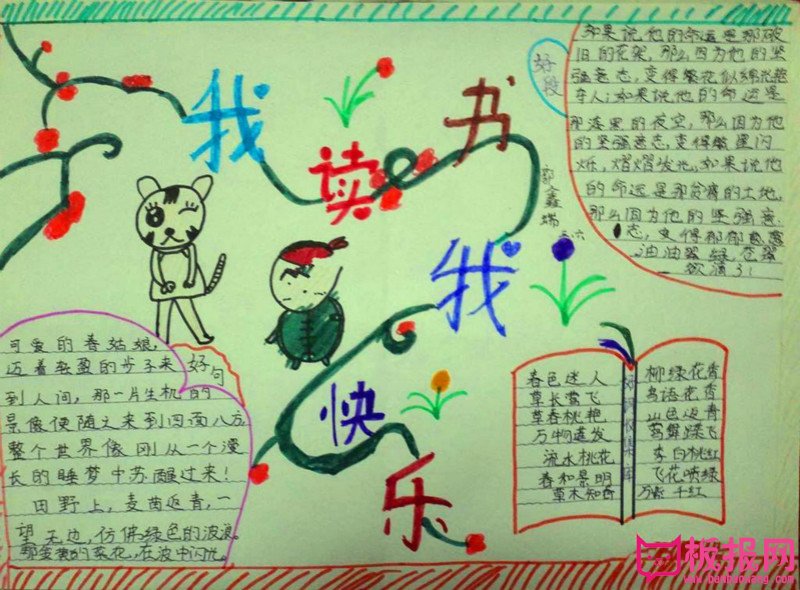 我读书
我快乐
好段
如果说他的命运是那破
旧的花架，那么因为他的坚
强意志，变得繁花似锦光艳
夺人；如果说他的命运是
那漆黑的夜空，那么因为他
的坚强意志，变得繁星闪
烁，熠熠发光。如果说他
的命运是那贫瘠的土地，
那么因为他的坚强意
志，变得郁郁葱葱
油油
欲滴了！
鑫
瑞
三六
可爱的春姑娘，
迈着轻盈的步子来
到人间，那一片生机的
景像便随之来到四面八方
整个世界像刚从一个漫
长的睡梦中苏醒过来！
田野上，麦苗返青，一
望无边，仿佛绿色的波浪。
那金黄的菜花，在波中闪光。
好句
春色迷人
草长莺飞
草春桃艳
万物蓬发
流水桃花
春和景明
草木知春
柳绿花香
鸟语花香
山色返青
莺舞蝶飞
李白桃红
飞花喷绿
万紫千红
极报网
www.banbaowang.com